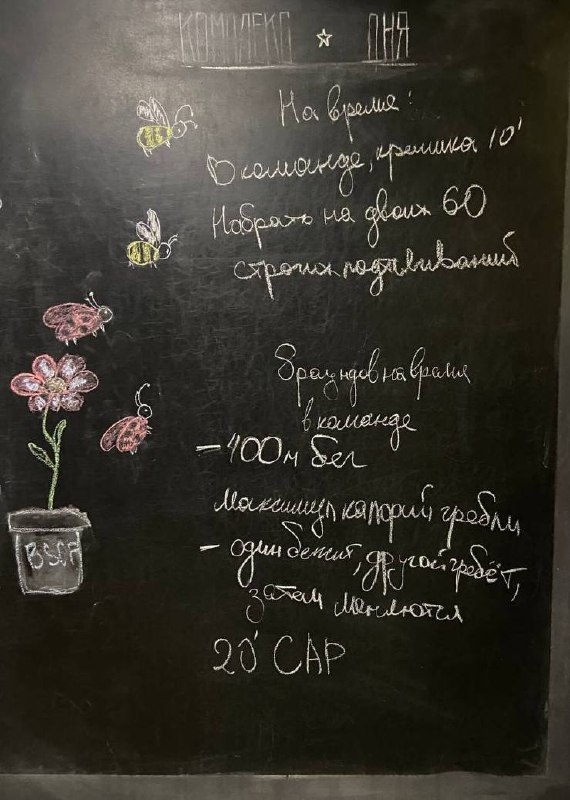 КОМПЛЕКС ☆ ДНЯ
На время:
В команде, кришка 10'
Набрать на двоих 60
строгих подтягиваний
8 раундов на время
в команде
- 400м бег
Максимум калорий гребли
- один бежит, другой гребёт,
затем меняются
20' CAP